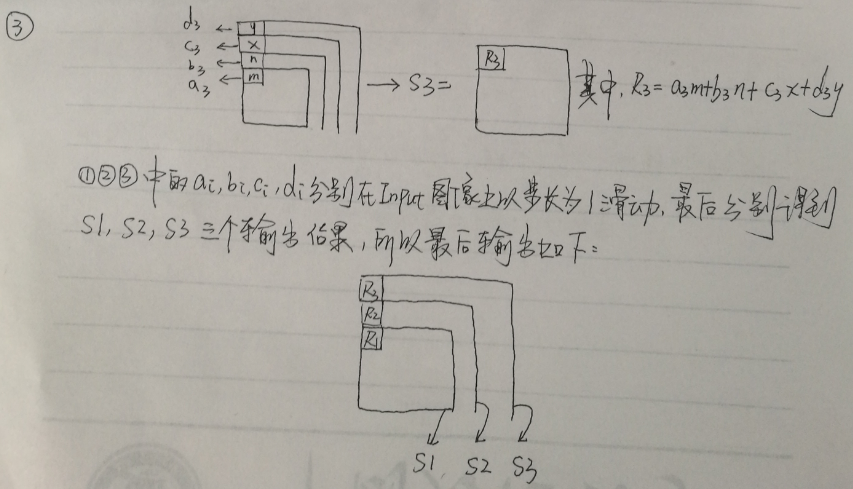 ③
d₃ ← y
c₃ ← x
b₃ ← n
a₃ ← m
→ S3 =
R₃
其中, R₃ = a₃m+b₃n+c₃x+d₃y
①②③中的ai,bi,ci,di分别在Input图像上以步长为1滑动,最后分别得到
S1, S2, S3 三个输出结果,所以最后输出如下:
R₃
R₂
R₁
S1 S2 S3